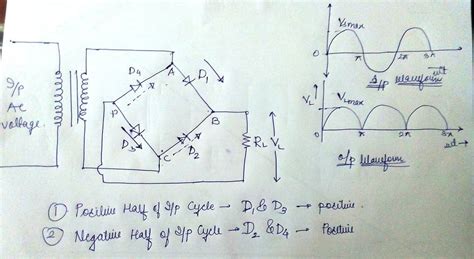 I/p
AC
Voltage.
D4
A
D1
P
B
D3
D2
C
RL
VL
Vsmax
0
π
2π
3π
wt
I/p Waveform
VL
VLmax
0
π
2π
3π
O/p Waveform
① Positive Half of I/p Cycle → D1 & D3 → positive.
② Negative Half of I/p Cycle → D2 & D4 → Positive